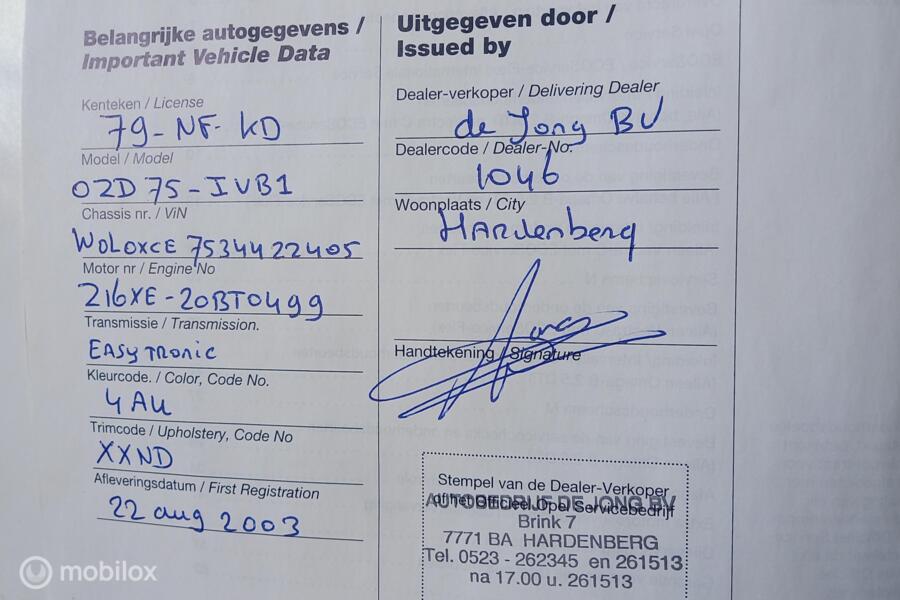 Belangrijke autogegevens /
Important Vehicle Data
Kenteken / License
79-NF-KD
Model / Model
OZD 75-IVB1
Chassis nr. / ViN
WOLOXCE 7534422405
Motor nr / Engine No
Z16XE-20BT0499
Transmissie / Transmission.
EASYTRONIC
Kleurcode. / Color, Code No.
4AU
Trimcode / Upholstery, Code No
XXND
Afleveringsdatum / First Registration
22 aug 2003
Uitgegeven door /
Issued by
Dealer-verkoper / Delivering Dealer
de Jong BV
Dealercode / Dealer-No.
1046
Woonplaats / City
HARdenberg
Handtekening / Signature
Stempel van de Dealer-Verkoper
of het Officieel Opel Servicebedrijf
AUTOBEDRIJF DE JONG BV
Brink 7
7771 BA HARDENBERG
Tel. 0523 - 262345 en 261513
na 17.00 u. 261513
mobilox